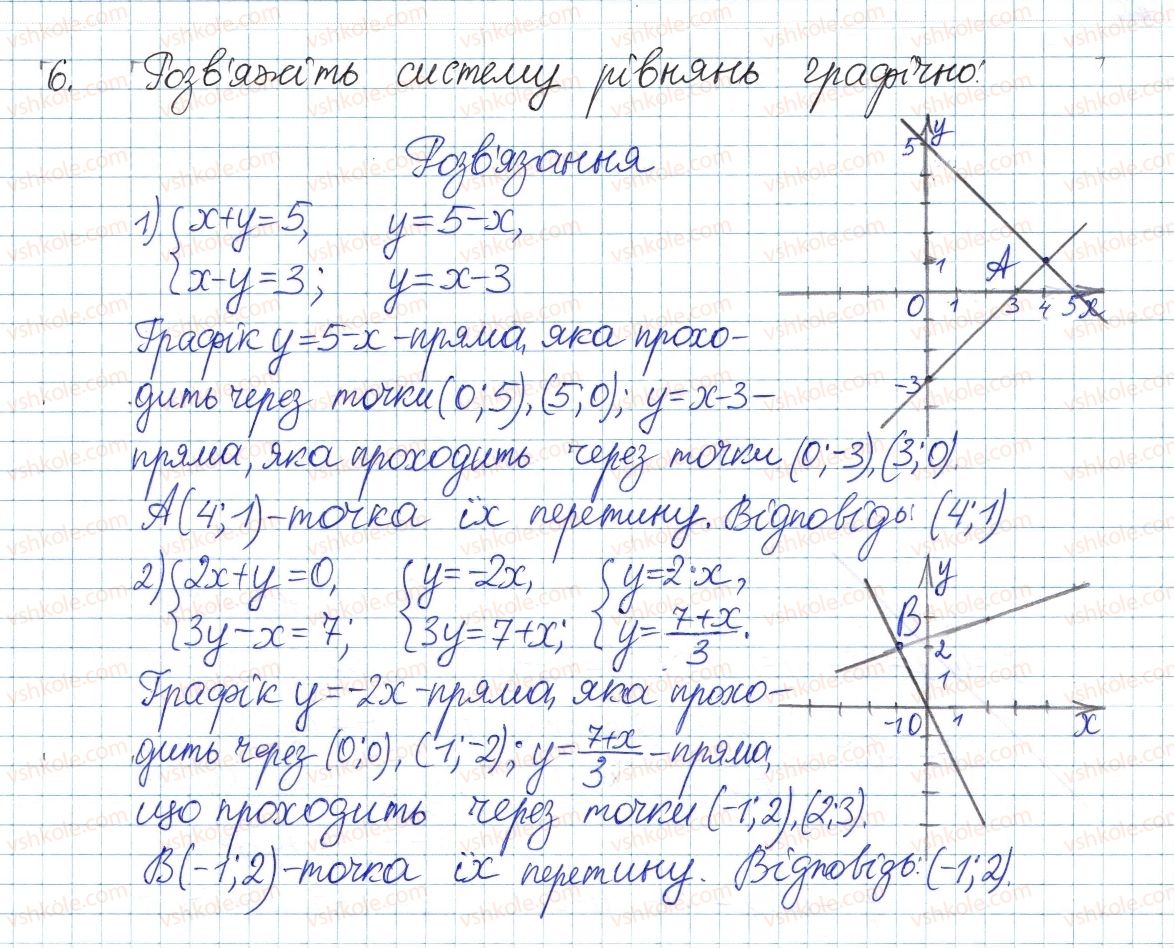 6. Розв'яжіть систему рівнянь графічно:
Розв'язання
1) { x+y=5, y=5-x,
x-y=3; y=x-3
Графік y=5-x - пряма, яка прохо-
дить через точки (0;5), (5;0); y=x-3 -
пряма, яка проходить через точки (0;-3), (3;0).
A(4;1) - точка їх перетину. Відповідь: (4;1)
2) { 2x+y=0, { y=-2x, { y=2·x,
3y-x=7; 3y=7+x; y=7+x/3.
Графік y=-2x - пряма, яка прохо-
дить через (0;0), (1;-2); y=7+x/3 - пряма,
що проходить через точки (-1;2), (2;3).
B(-1;2) - точка їх перетину. Відповідь: (-1;2).
5 y
1 A
0 1 3 4 5 x
-3
y
B
2
1
-1 0 1 x
vshkole.com